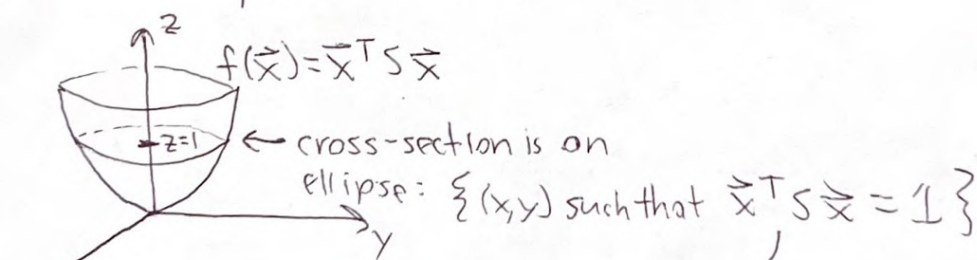 z
f(x⃗)=x⃗ᵀSx⃗
z=1 ← cross-section is on
ellipse: {(x,y) such that x⃗ᵀSx⃗ = 1}
y